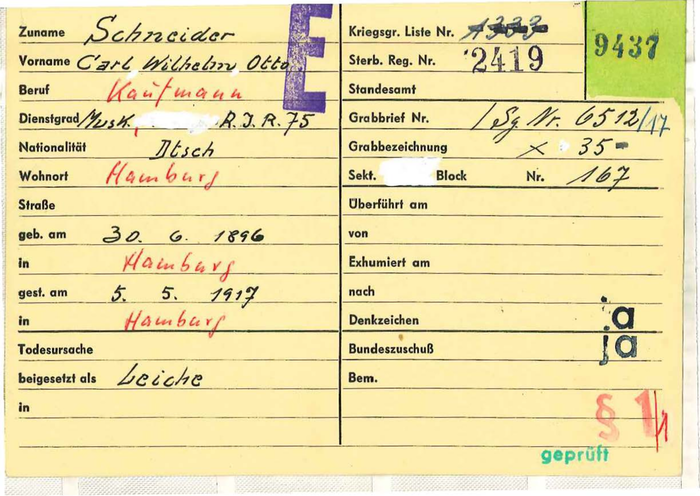 Zuname Schneider
Vorname Carl Wilhelm Otto
Beruf Kaufmann
Dienstgrad Musk. R.I.R. 75
Nationalität Dtsch
Wohnort Hamburg
Straße
geb. am 30. 6. 1896
in Hamburg
gest. am 5. 5. 1917
in Hamburg
Todesursache
beigesetzt als Leiche
in
E
Kriegsgr. Liste Nr.
9437
Sterb. Reg. Nr. 2419
Standesamt
Grabbrief Nr. / Sg. Nr. 6512/17
Grabbezeichnung x 35-
Sekt. Block Nr. 167
Überführt am
von
Exhumiert am
nach
Denkzeichen ja
Bundeszuschuß ja
Bem.
§ 1/1
geprüft